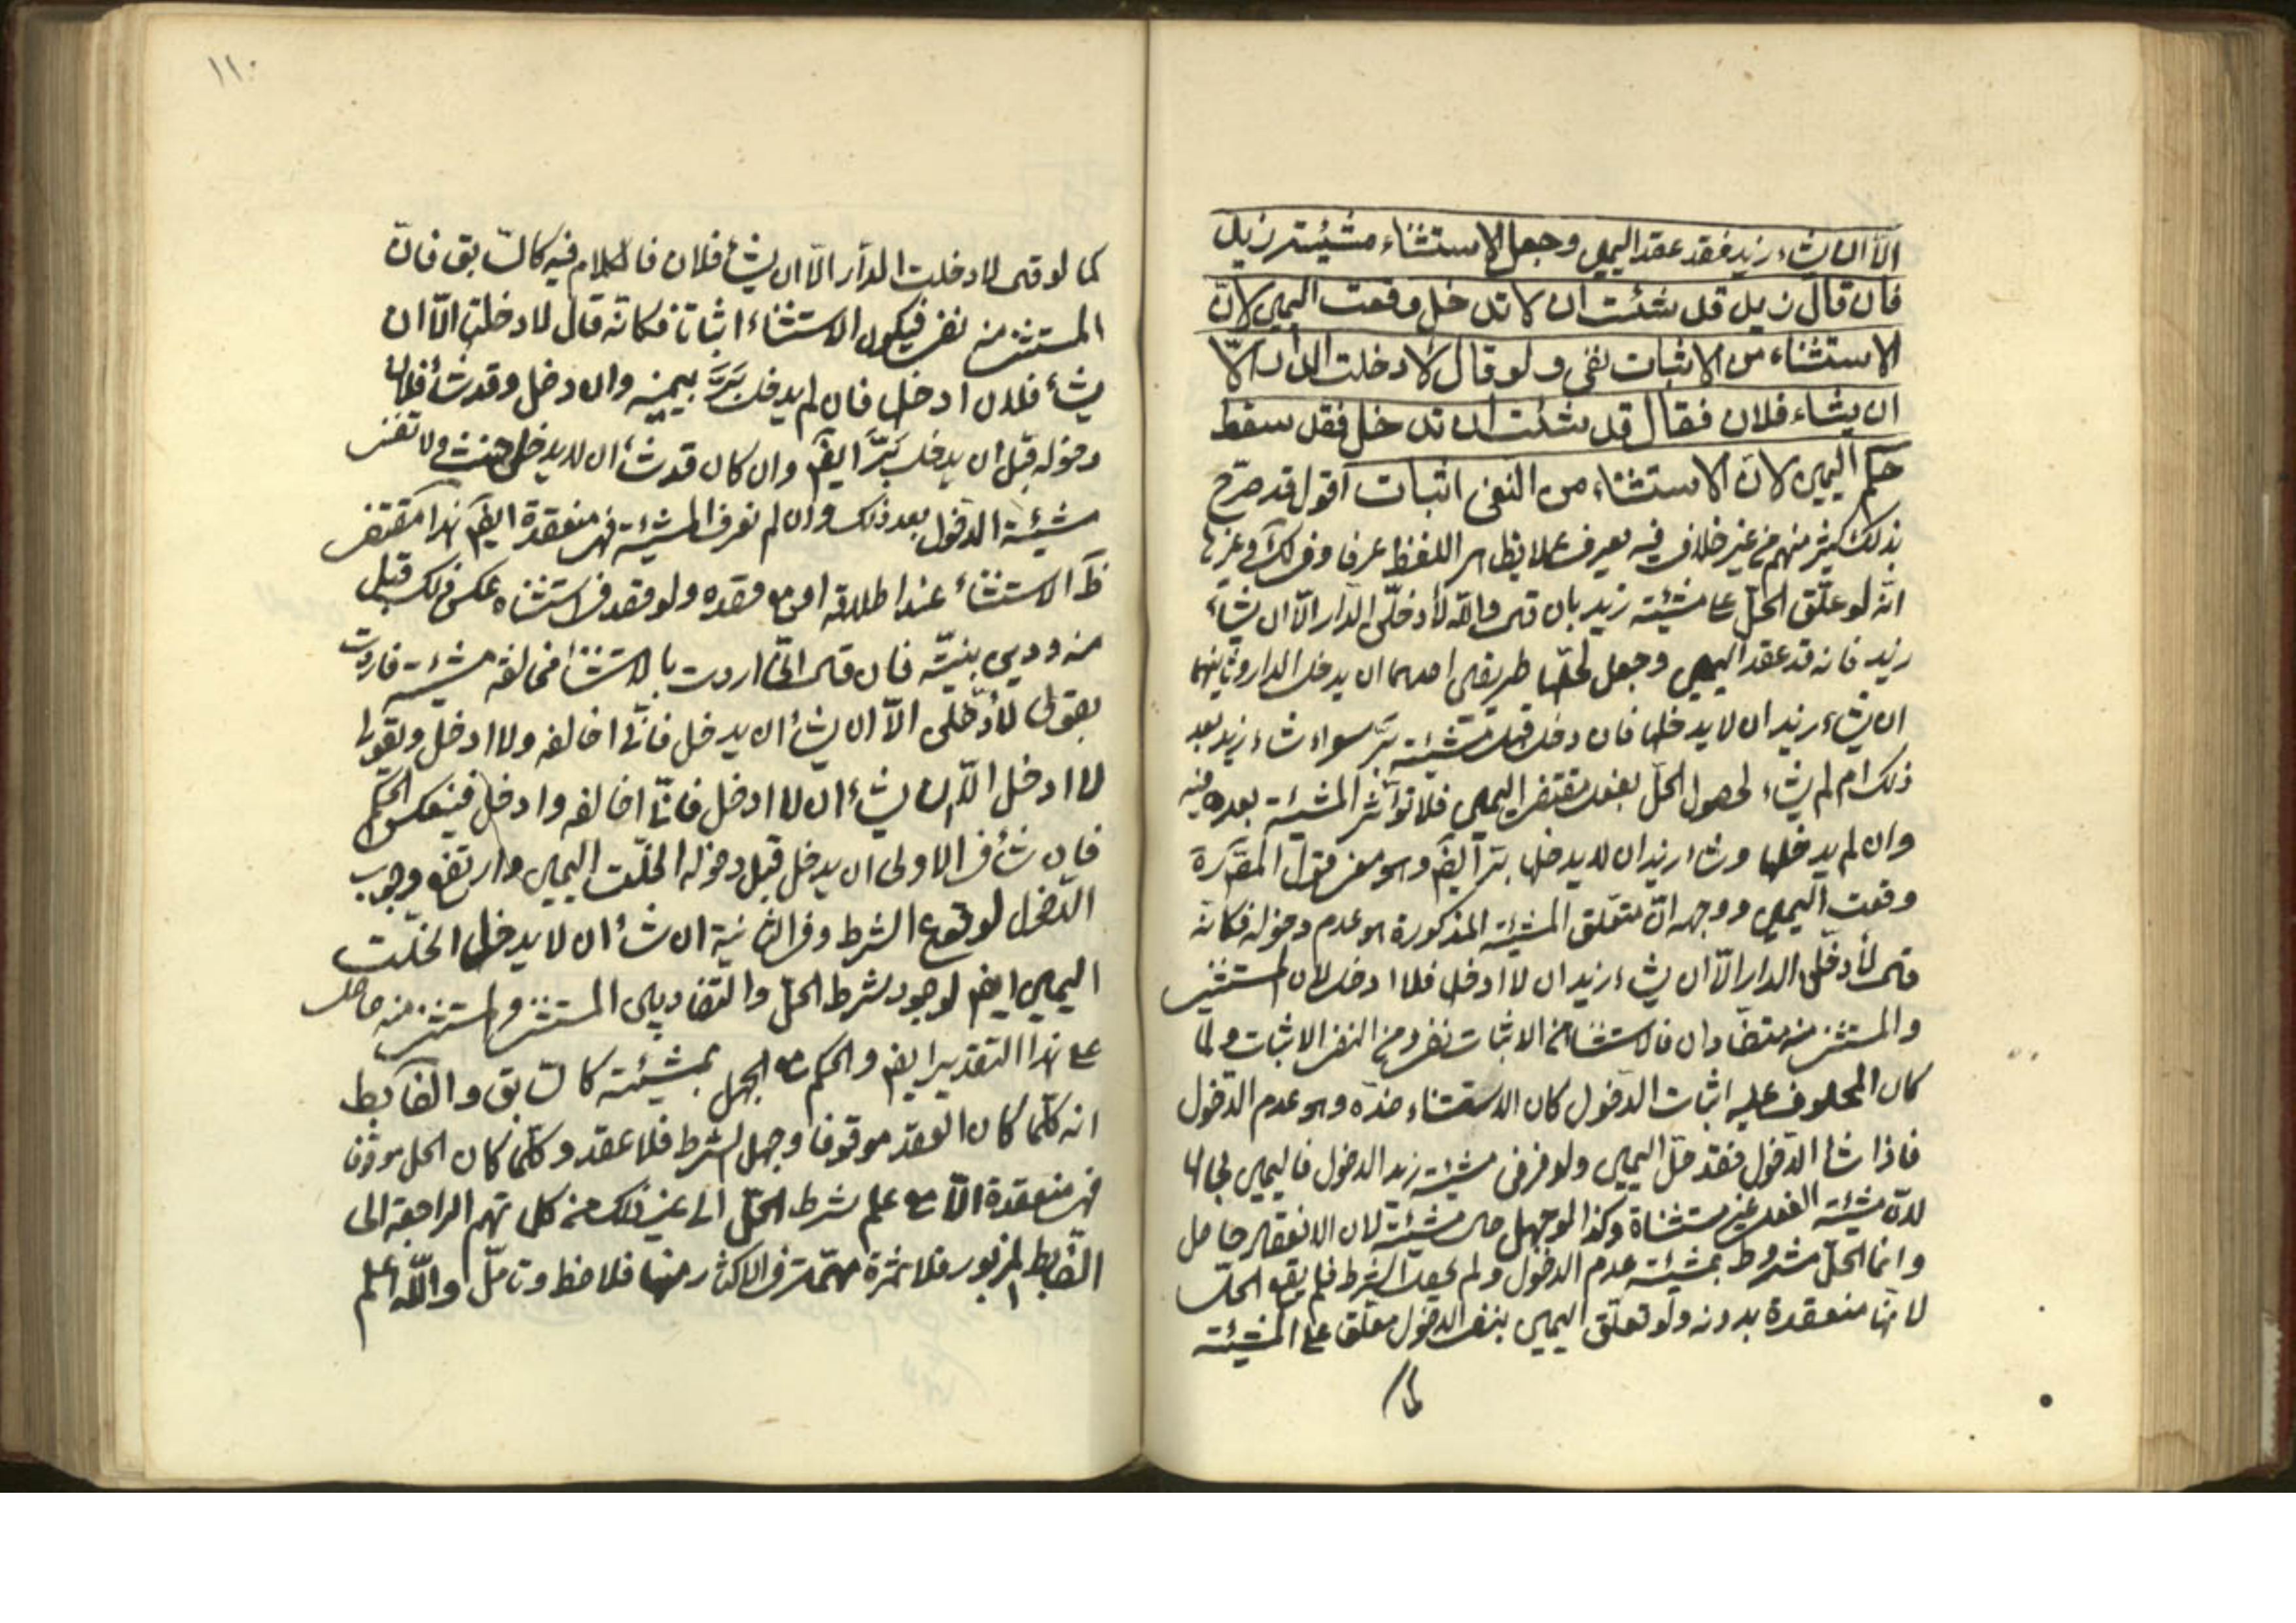 الّا ان يشاء زيد فقد عقد اليمين وجعل الاستثناء مشيئة زيد
فان قال زيد قد شئت ان لا تدخل وقعت اليمين لانّ
الاستثناء من الاثبات نفى ولو قال لا دخلت الدار الّا
ان يشاء فلان فقال قد شئت ان تدخل فقد سقط
حكم اليمين لانّ الاستثناء من النفى اثبات اقول قد صرّح
بذلك كثير منهم من غير خلاف فيه يعرف عملا بظاهر اللفظ عرفا وفى لك وغيرها
انّه لو علّق الحلّ على مشيئة زيد بان قى والله لأدخلنّ الدار الّا ان يشاء
زيد فانه قد عقد اليمين وجعل لحلّها طريقين احدهما ان يدخل الدار وثانيهما
ان يشاء زيد ان لا يدخلها فان دخل قبل مشيئته برّ سواء شاء زيد بعد
ذلك ام لم يشاء لحصول الحلّ بفعل مقتضى اليمين فلا تؤثّر المشيئة بعده فيه
وان لم يدخلها وشاء زيد ان لا يدخلها برّ ايضً وهو معنى قول المص ره
وقعت اليمين ووجهه انّ متعلّق المشيئة المذكورة هو عدم دخوله فكانه
قى لأدخلنّ الدار الّا ان يشاء زيد ان لا ادخل فلا ادخل لان المستثنى
والمستثنى منه متضادان فالاستثنا من الاثبات نفى ومن النفى الاثبات ولما
كان المحلوف عليه اثبات الدّخول كان الاستثناء ضدّه وهو عدم الدّخول
فاذا شا الدّخول فقد حلّ اليمين ولو فرض مشيئة زيد الدخول فاليمين بحالها
لانّ مشيئة الفعل غير مستثناة وكذا لو جهل حال مشيئته لان الانعقاد حاصل
وانما الحلّ مشروط بمشيئته عدم الدخول ولم يحصل الشرط فلم يقع الحلّ
لانّها منعقدة بدونه ولو تعلّق اليمين بنفى الدخول معلّق على المشيئة
كما
١١٠
كما لو قى لا دخلت الدّار الّا ان يشأ فلان فالكلام فيه كالسّابق فانّ
المستثنى منه نفى فيكون الاستثناء اثباتا فكانه قال لا دخلت الّا ان
يشأ فلان ادخلها فان لم يدخل برّ بيمينه وان دخل وقد شأ فلان
دخوله قبل ان يدخل برّ ايضً وان كان قد شاء ان لا يدخل حنث ولا تغنى
مشيئة الدّخول بعد ذلك وان لم نعرف المشيئة فهى منعقدة ايضً هذا مقتضى
ظَ الاستثناء عند اطلاقه او مع قصده ولو قصد فى استثناه عكس ذلك قبل
منه ودين بنيّته فان قى انّى اردت بالاستثنا مخالفة مشيئته فاردت
بقولى لأدخلنّ الّا ان يشأ ان يدخل فانّى اخالفه ولا ادخل وبقولى
لا ادخل الّا ان يشاء ان لا ادخل فانّى اخالفه وادخل فينعكس الحكم
فان شأ فى الاولى ان يدخل قبل دخوله انحلّت اليمين وارتفع وجوب
الدّخول لوقوع الشرط وفى الثانية ان شأ ان لا يدخل انحلّت
اليمين ايضً لوجود شرط الحلّ والتضاد بين المستثنى والمستثنى منه حاصل
على هذا التقدير ايضً والحكم مع الجهل بمشيئته كالسّابق والضّابط
انه كلّما كان العقد موقوفا وجهل الشرط فلا عقد وكلّما كان الحل موقوفا
فهى منعقدة الّا مع علم شرط الحلّ الى غير ذلك من كلماتهم الراجعة الى
الضّابط المزبور فلا ثمرة مهمّة فى الاكثار منها فلاحظ وتأمّل والله اعلم